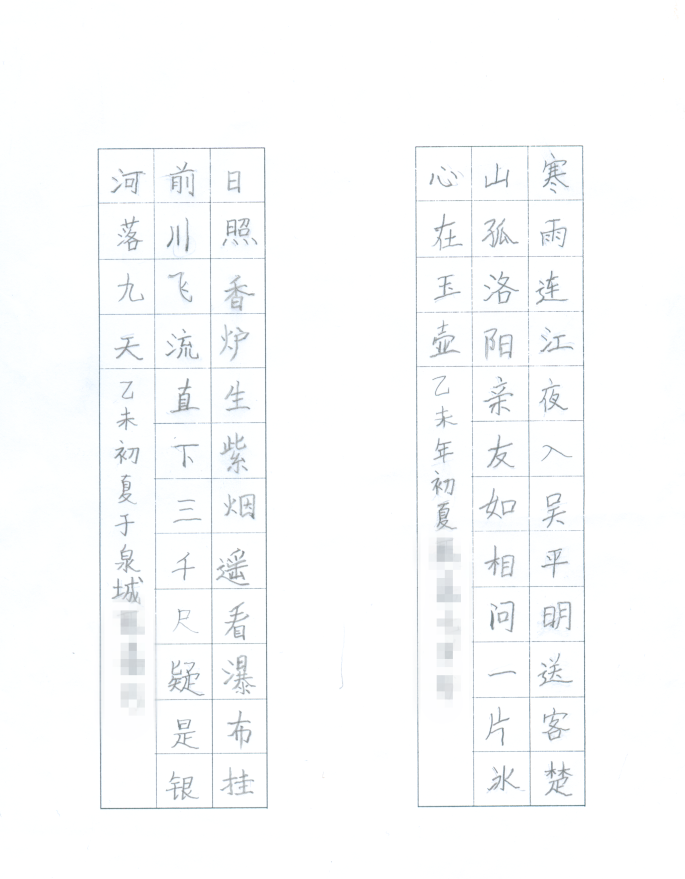 寒雨连江夜入吴平明送客楚
山孤洛阳亲友如相问一片冰
心在玉壶乙未年初夏
日照香炉生紫烟遥看瀑布挂
前川飞流直下三千尺疑是银
河落九天乙未初夏于泉城